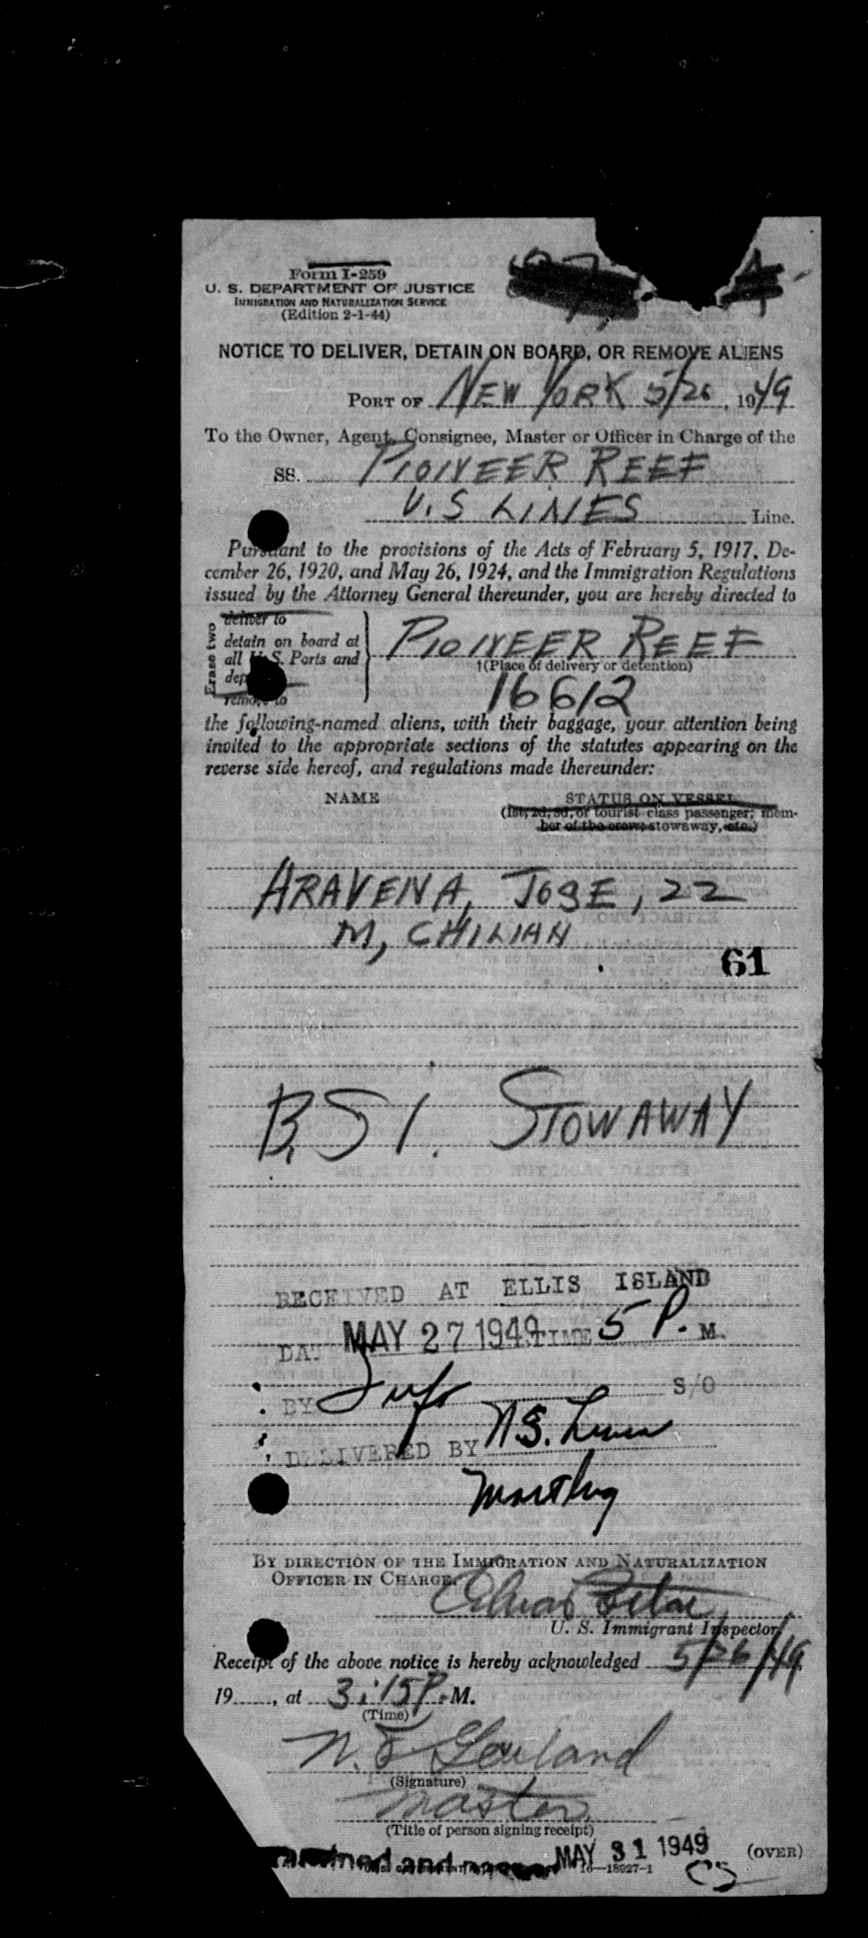 Form I-259
U. S. DEPARTMENT OF JUSTICE
IMMIGRATION AND NATURALIZATION SERVICE
(Edition 2-1-44)
NOTICE TO DELIVER, DETAIN ON BOARD, OR REMOVE ALIENS
PORT OF NEW YORK 5/26, 1949
To the Owner, Agent, Consignee, Master or Officer in Charge of the
SS. PIONEER REEF
U.S LINES Line.
Pursuant to the provisions of the Acts of February 5, 1917, De-
cember 26, 1920, and May 26, 1924, and the Immigration Regulations
issued by the Attorney General thereunder, you are hereby directed to
Erase two
deliver to
detain on board at
all U.S. Ports and
remove to
PIONEER REEF
†(Place of delivery or detention)
16612
the following-named aliens, with their baggage, your attention being
invited to the appropriate sections of the statutes appearing on the
reverse side hereof, and regulations made thereunder:
NAME STATUS ON VESSEL
(1st, 2d, 3d, or tourist class passenger; mem-
ber of the crew; stowaway, etc.)
ARAVENA, JOSE, 22
M, CHILIAN
61
B.S I. STOWAWAY
RECEIVED AT ELLIS ISLAND
DA. MAY 27 1949 TIME 5 P. M.
BY S/O
DELIVERED BY N.S. Lines
BY DIRECTION OF THE IMMIGRATION AND NATURALIZATION
OFFICER IN CHARGE.
U. S. Immigrant Inspector
Receipt of the above notice is hereby acknowledged 5/26/49
19......, at 3:15 P. M.
(Time)
(Signature)
Master
(Title of person signing receipt)
MAY 31 1949 (OVER)
16—18927-1